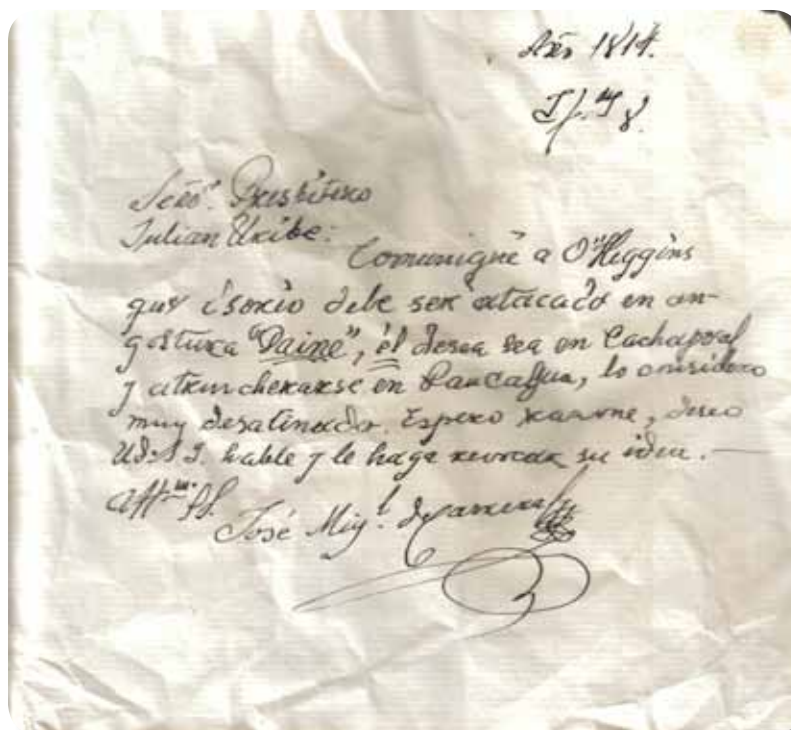 Año 1814.
Señor. Presbitero
Julian Uribe:
Comuniqué a O'Higgins
que Osorio debe ser atacado en an-
gostura "Paine", él desea sea en Cachapoal
y atrincherarse en Rancagua, lo considero
muy desatinado. Espero razone, deseo
Ud. S. hable y le haga revocar su idea.—
José Mig.l de Carrera